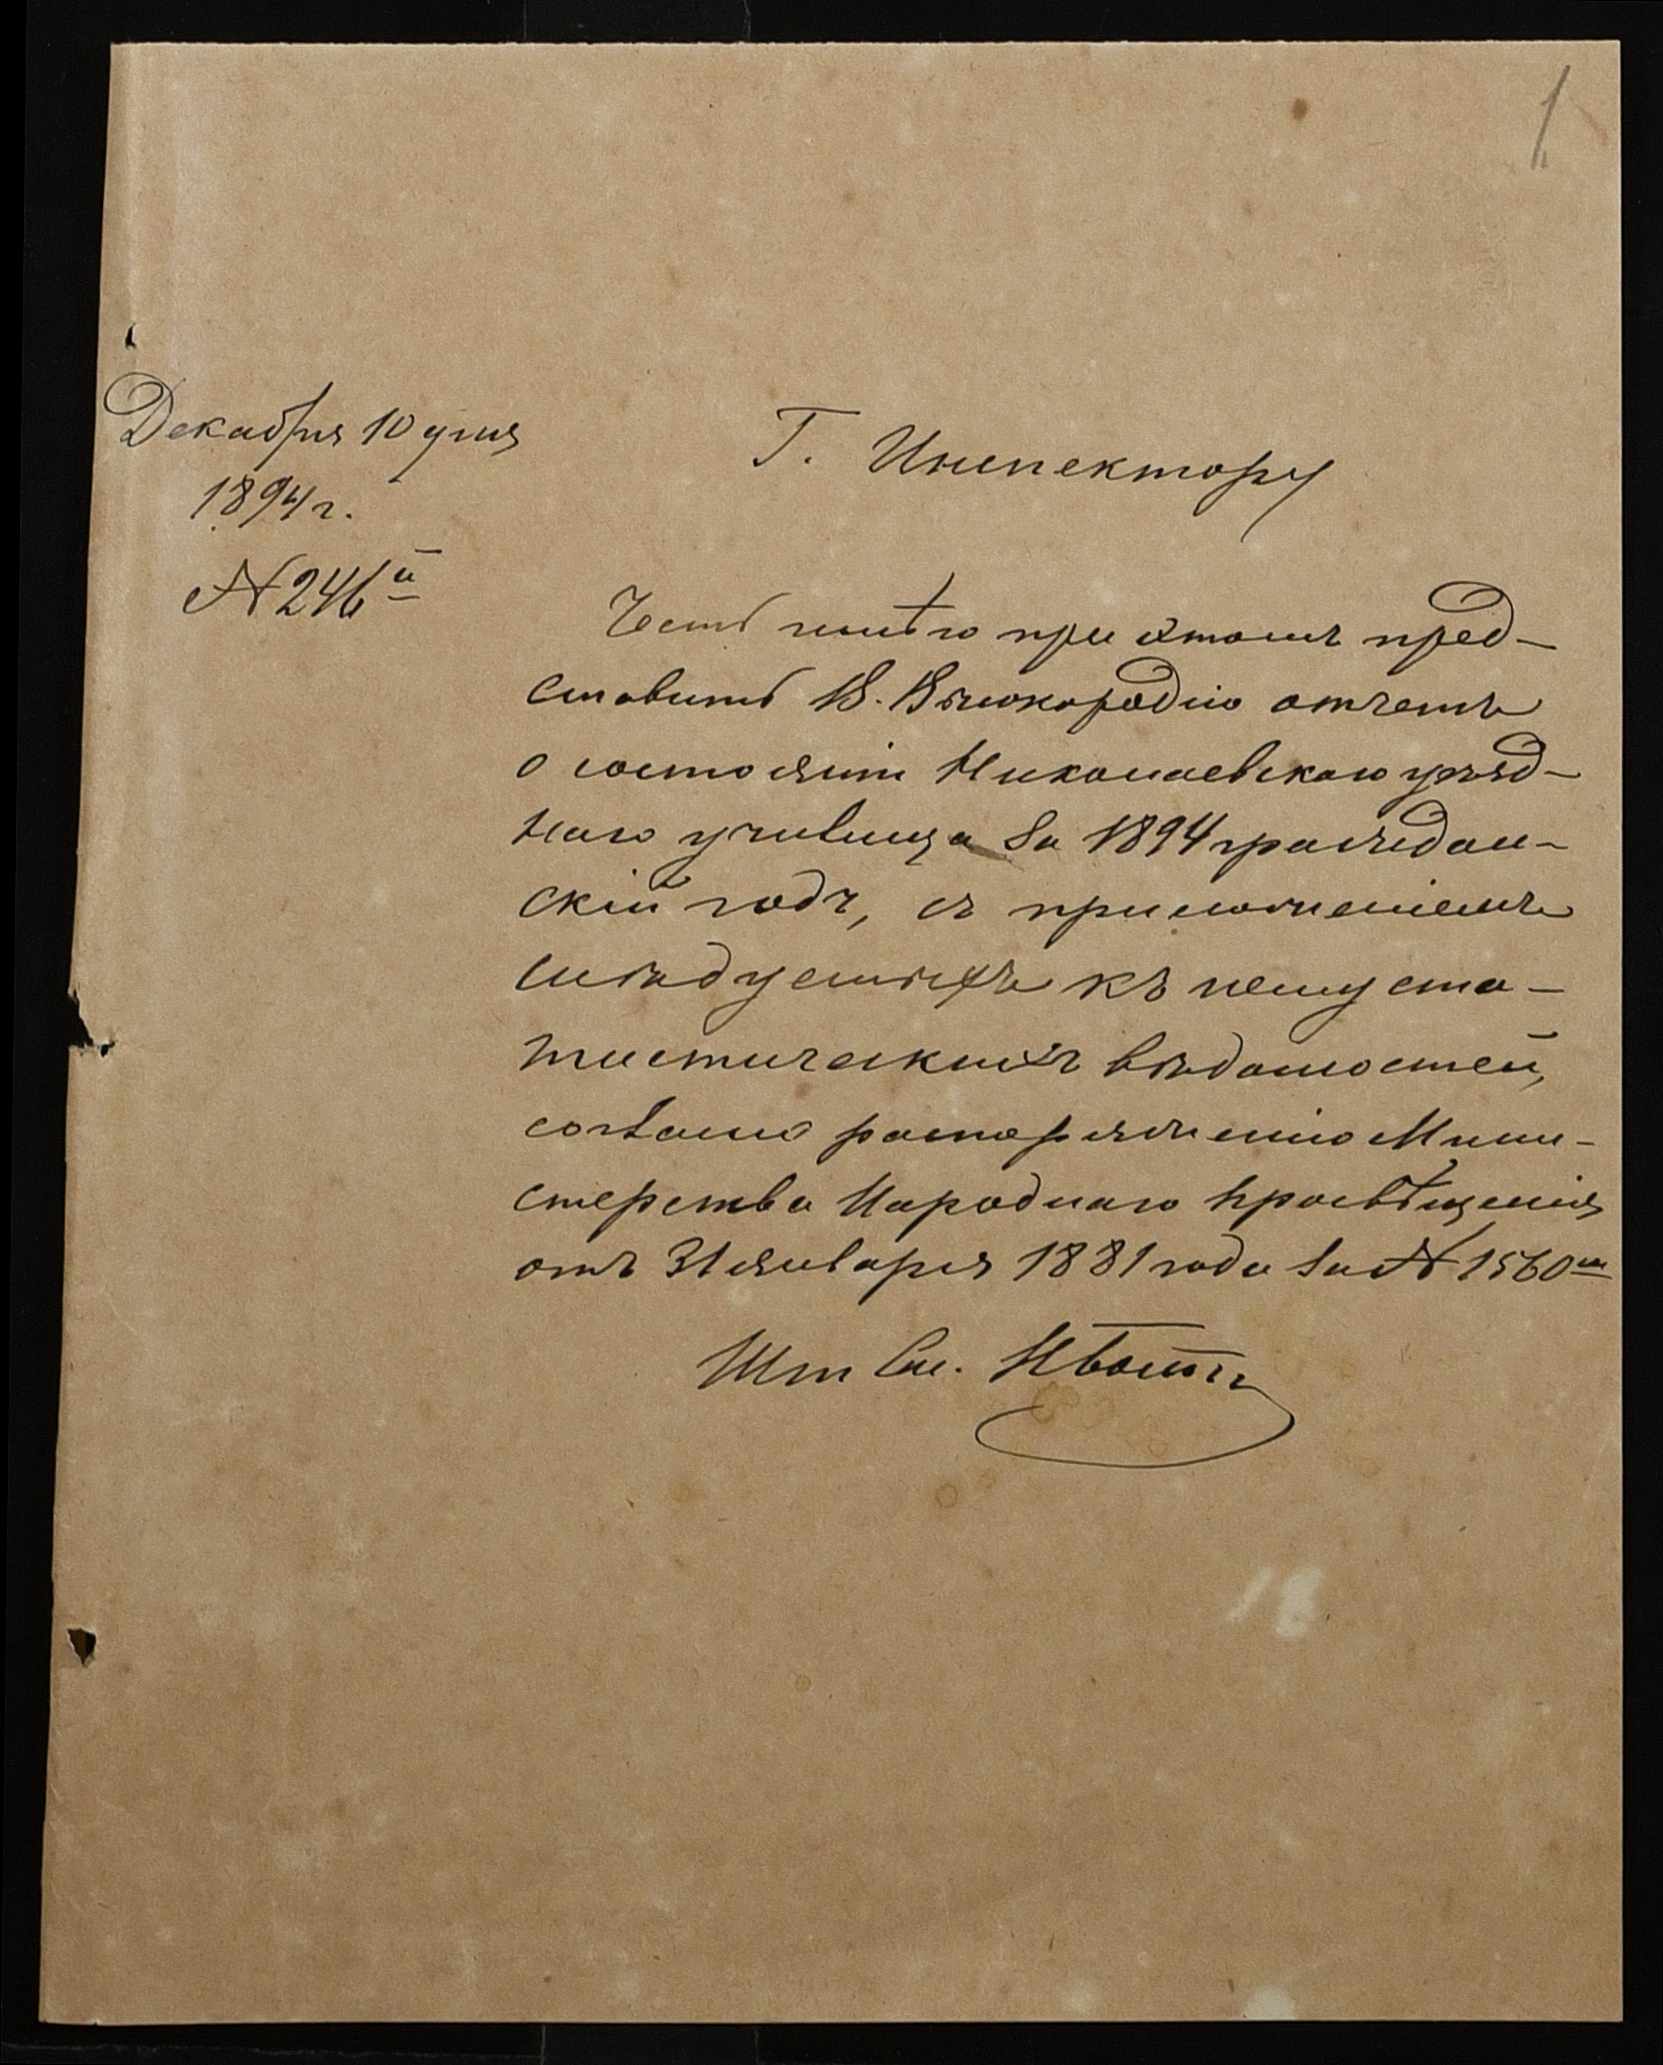 1
Декабря 10 дня
1894 г.
№ 246й
Г. Инспектору
Честь имѣю при этомъ пред-
ставить В. Высокородію отчетъ
о состояніи Николаевскаго уѣзд-
наго училища за 1894 граждан-
скій годъ, съ приложеніемъ
слѣдуемыхъ къ нему ста-
тистическихъ вѣдомостей,
согласно распоряженію Мини-
стерства Народнаго Просвѣщенія
отъ 31 января 1881 года за № 1560мъ
Шт См.